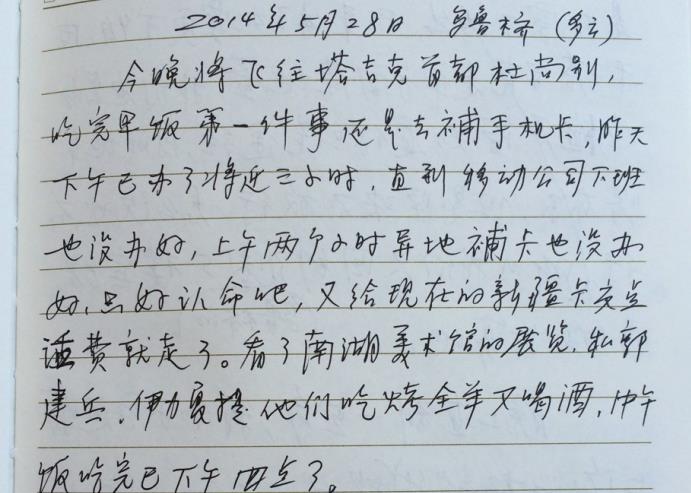 2014年5月28日 乌鲁木齐 (多云)
今晚将飞往塔吉克首都杜尚别,
吃完早饭第一件事还是去補手机卡,昨天
下午已办了将近三小时,直到移动公司下班
也没办好,上午两个小时异地補卡也没办
好,只好认命吧,又给现在的新疆卡交点
话费就走了。看了南湖美术馆的展览,和郭
建兵、伊力夏提他们吃烤全羊又喝酒,中午
饭吃完已下午四点了。